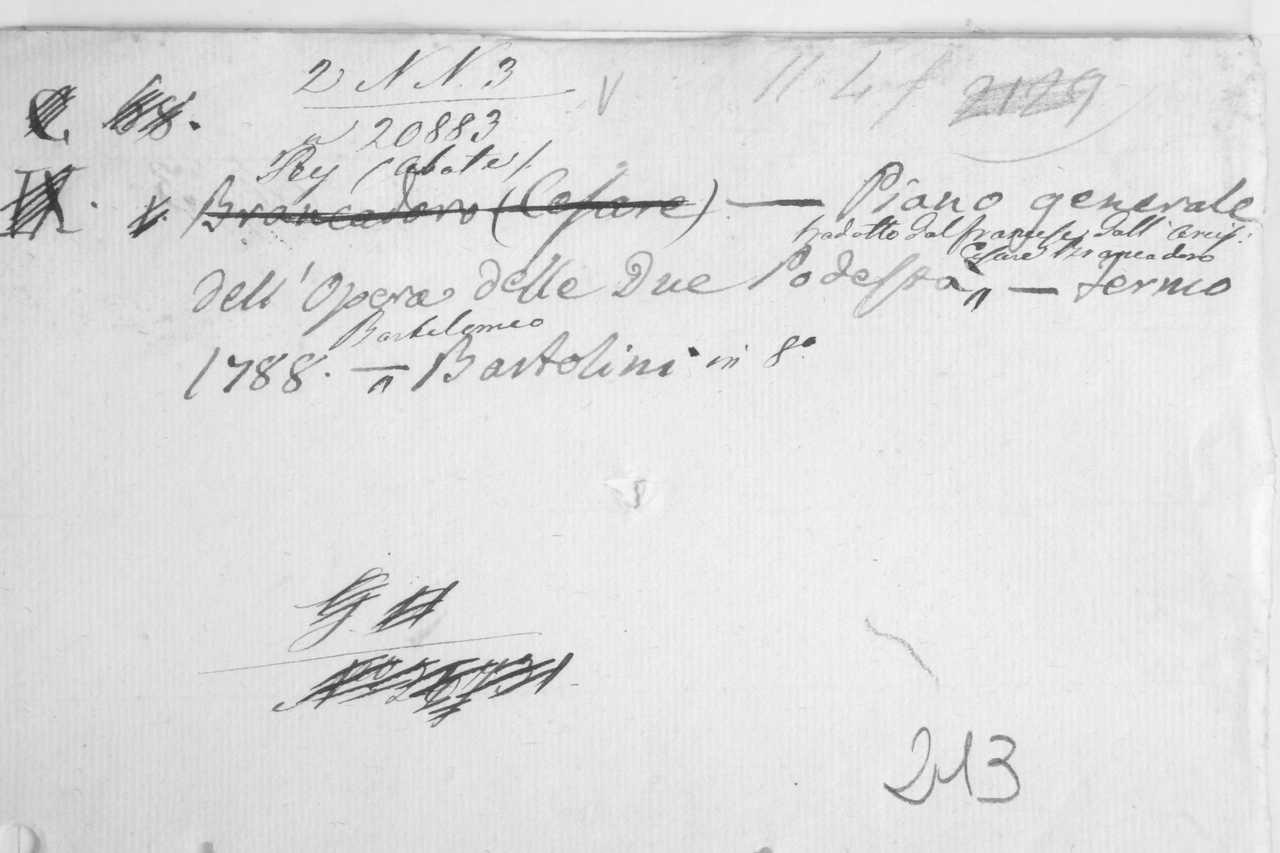 2 N N. 3
V
11 4 f 2129
C. 88.
n° 20883
Rey (Abate)
IX. Brancadoro (Cesare) — Piano generale
tradotto dal francese dall' Arciv:
Cesare Brancadoro
dell' Opera delle Due Podestà — Fermo
Bartolomeo
1788. — Bartolini in 8°
213